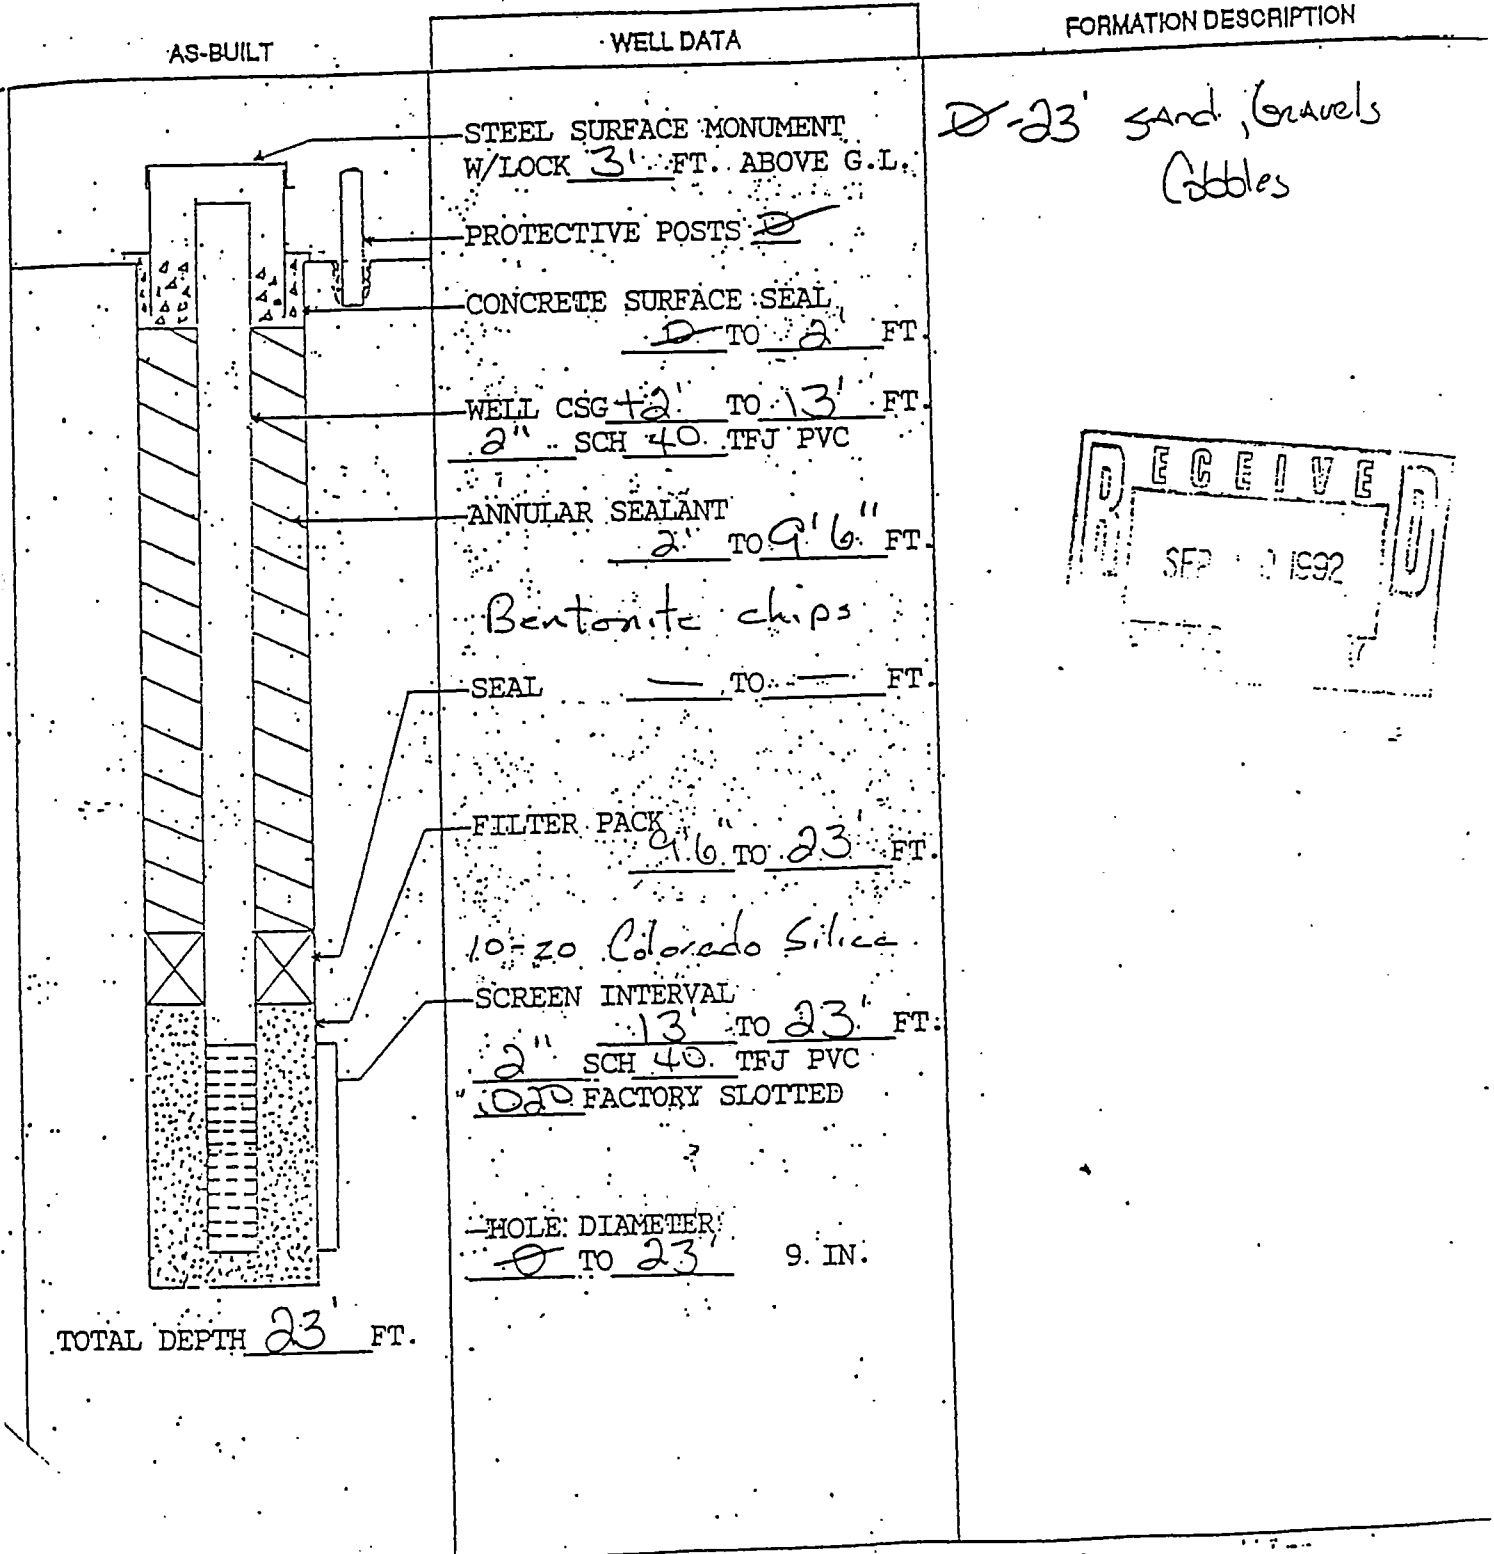 AS-BUILT
WELL DATA
FORMATION DESCRIPTION
STEEL SURFACE MONUMENT
W/LOCK 3' FT. ABOVE G.L.
PROTECTIVE POSTS Ø
CONCRETE SURFACE SEAL
Ø TO 2' FT.
WELL CSG +2' TO 13' FT.
2" SCH 40 TFJ PVC
ANNULAR SEALANT
2' TO 9'6" FT.
Bentonite chips
SEAL — TO — FT.
FILTER PACK
9'6" TO 23' FT.
10-20 Colorado Silica
SCREEN INTERVAL
13' TO 23' FT.
2" SCH 40 TFJ PVC
.020 FACTORY SLOTTED
HOLE DIAMETER
Ø TO 23' 9 IN.
TOTAL DEPTH 23' FT.
Ø-23' SAnd, GrAvels
Cobbles
RECEIVED
SEP 1992